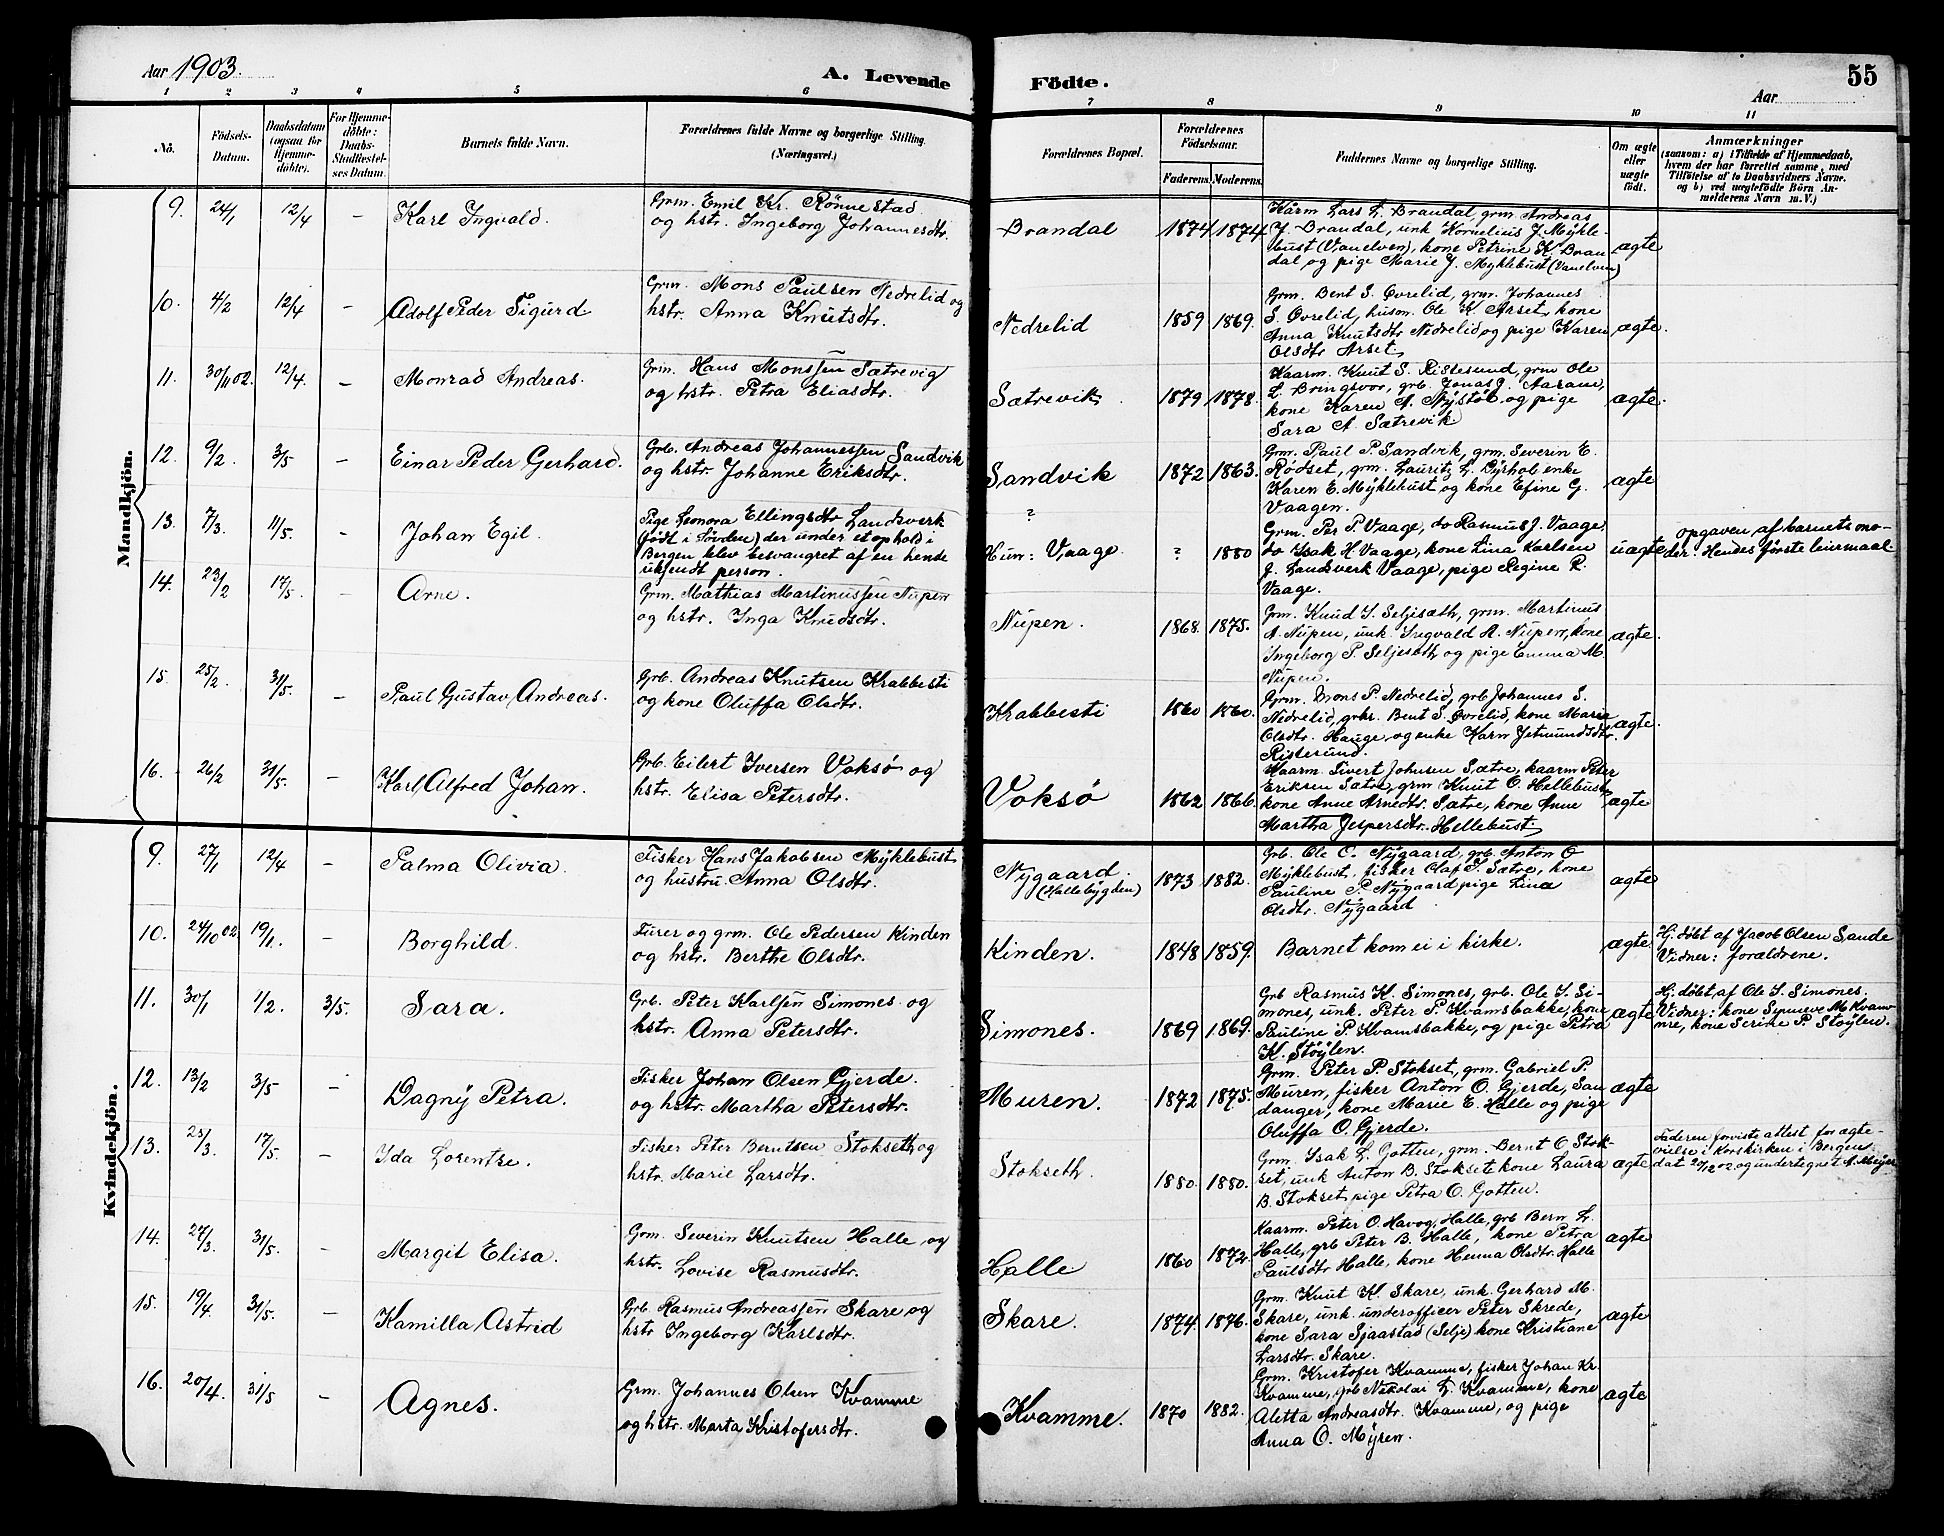 Aar 1903.
A. Levende Födte.
55
Aar
1 2 3 4 5 6 7 8 9 10 11
Nö.
Födsels-
Datum.
Daabsdatum
(ogsaa for
Hjemme-
döbte).
For Hjemme-
döbte:
Daabs-
Stadfæstel-
ses Datum.
Barnets fulde Navn.
Forældrenes fulde Navne og borgerlige Stilling.
(Næringsvei.)
Forældrenes Bopæl.
Forældrenes
Födselsaar.
Faderens. Moderens.
Faddernes Navne og borgerlige Stilling.
Om ægte
eller
uægte
födt.
Anmærkninger
(saasom: a) i Tilfælde af Hjemmedaab,
hvem der har forrettet samme, med
Tilföielse af to Daabsvidners Navne.
og b) ved uægtefödte Börn An-
melderens Navn m.V.)
Mandkjön.
9. 24/1 12/4 – Karl Ingvald.
Grm. Emil Kr. Rönnestad
og hstr. Ingeborg Johannesdtr.
Brandal 1874 1874
Kårm Lars L. Brandal, grm. Andreas
J. Brandal, unk Kornelius J. Mykle-
bust (Vanelven), kone Petrine K. Bran
dal, og pige Marie J. Myklebust (Vanelven)
ægte
10. 4/2 12/4 – Adolf Peder Sigurd
Grm. Mons Paulsen Nedrelid og
hstr. Anna Knutsdtr.
Nedrelid 1859 1869.
Grm. Bent S. Øvrelid, grm. Johannes
S. Øvrelid, husm. Ole K. Arset, kone
Anna Knutsdtr Nedrelid og pige Karen
Olsdtr Arset.
ægte.
11. 30/11 02. 12/4. – Monrad Andreas.
Grm. Hans Monssen Sætrevig
og hstr. Petra Eliasdtr.
Sætrevik 1879 1878.
Kaarm. Knut S. Ristesund, grm Ole
L. Bringsvor, grb. Jonas J. Aaram,
kone Karen A. Nystöl og pige
Sara A. Sætrevik
ægte.
12. 9/2. 3/5 – Einar Peder Gerhard.
Grb. Andreas Johannessen Sandvik
og hstr. Johanne Eriksdtr.
Sandvik 1872 1863.
Grm. Paul P. Sandvik, grm. Severin E.
Rødset, grm. Lauritz L. Dyrhol enke
Karen E. Myklebust og kone Efine G.
Vaagen.
ægte
13. 7/3. 11/5. – Johan Egil.
Pige Leonora Ellingsdtr Landsverk
(født i Søvden) der under et ophold i
Bergen blev besvangret af en hende
ukjendt person.
?
Hun: Vaage. ? 1880
Grm. Per P. Vaage, do Rasmus J. Vaage
do Isak H. Vaage, kone Lina Karlsen
J. Landsverk Vaage, pige Regine R.
Vaage.
uægte
opgaven af barnets mo-
der. Hendes første leiermaal
14. 23/2 17/5. – Arne.
Grm. Mathias Martinussen Nupen
og hstr. Inga Knudsdtr.
Nupen. 1868. 1875.
Grm. Knud S. Seljisæth, grm. Martinus
A. Nupen, unk. Ingvald A. Nupen, kone
Ingeborg P. Seljesæth og pige Emma M.
Nupen.
ægte.
15. 25/2. 31/5. – Paul Gustav Andreas.
Grb. Andreas Knutsen Krabbesti
og kone Oluffa Olsdtr.
Krabbesti 1860 1860.
Grm. Mons P. Nedrelid, grb Johannes S.
Nedrelid, grbr. Bent S. Øvrelid, kone Marie
Olsdtr. Hauge, og enke Karn Jetmundsdtr.
Ristesund.
ægte.
16. 26/2 31/5. – Karl Alfred Johan.
Grb. Eilert Iversen Voksø og
hstr. Elisa Petersdtr.
Voksø 1862 1866.
Kaarm. Sivert Johnsen Sætre, kaarm Peter
Eriksen Sætre, grm Knut O. Hellebust
kone Anne Arnedtr. Sætre, kone Anne
Martha Jespersdtr. Hellebust.
ægte
Kvindekjön.
9. 27/1 12/4 – Palma Olivia.
Fisker Hans Jakobsen Myklebust
og hustru Anna Olsdtr.
Nygaard
(Hallebygden) 1873 1882.
Grb. Ole O. Nygaard, grb. Anton O
Myklebust, fisker Olaf S. Sætre, kone
Pauline P. Nygaard pige Lina
Olsdtr. Nygaard
ægte
10. 24/10 02 19/1. – Borghild.
Furer og grm. Ole Pedersen Kinden
og hstr. Berthe Olsdtr.
Kinden. 1848 1859.
Barnet kom ei i kirke.
ægte
Hj. døbt af Jacob Olsen Sande
Vidner: forældrene.
11. 30/1 1/2. 3/5. Sara.
Grb. Peter Karlsen Simones og
hstr. Anna Petersdtr.
Simones. 1869 1869.
Grb Rasmus K. Simones, grb. Ole S. Si-
mones, unk. Peter P. Kvamsbakke, kone
Pauline P. Kvamsbakke, og pige Petra
K. Støylen.
ægte
Hj. døbt, af Ole S. Simones.
Vidner: kone Synneve M Kvam-
me, kone Serike P. Støylen.
12. 13/2 3/5 – Dagny Petra.
Fisker Johan Olsen Gjerde.
og hstr. Martha Petersdtr.
Muren. 1872 1875.
Grm. Peter P. Stokset, grm. Gabriel P.
Muren, fisker Anton O. Gjerde, San
danger, kone Marie E. Halle og pige
Oluffa O. Gjerde.
ægte
13. 23/3. 17/5. – Ida Lorentze.
Fisker Peter Berntsen Stokseth og
hstr. Marie Larsdtr.
Stokseth. 1880. 1880.
Grm. Isak L. Gotten, grm. Bernt O Stok-
set, unk Anton B. Stokset kone Laura
B. Stokset pige Petra O. Gotten.
ægte
Faderen forviste attest for ægte-
vielse i Korskirken i Bergen
dat 20/12 02 og undertegnet A. Meyer
14. 27/3. 31/5. – Margit Elisa.
Grm. Severin Knutsen Halle og
hstr. Lovise Rasmusdtr.
Halle 1860 1872.
Kaarm. Peter O. Havog, Halle, grb Bern L.
Halle, grb Peter B. Halle, kone Petra
Paulsdtr Halle, kone Henna Olsdtr. Halle
ægte
15. 19/4 31/5. – Kamilla Astrid
Grb. Rasmus Andreassen Skare og
hstr Ingeborg Karlsdtr.
Skare. 1874. 1876.
Grm. Knut K. Skare, unk. Gerhard M.
Skare, unk. underofficer Peter Skrede,
kone Sara Sjaastad (Selje) kone Kristiane
Larsdtr. Skare.
ægte
16. 20/4. 31/5 – Agnes.
Grm. Johannes Olsen Kvamme
og hstr. Marta Kristofersdtr.
Kvamme. 1870 1882.
Grm. Kristofer Kvamme, fisker Johan Kr.
Kvamme, grb Nikolai L. Kvamme, kone
Aletta Andreasdtr. Kvamme, og pige
Anna O. Myren.
ægte